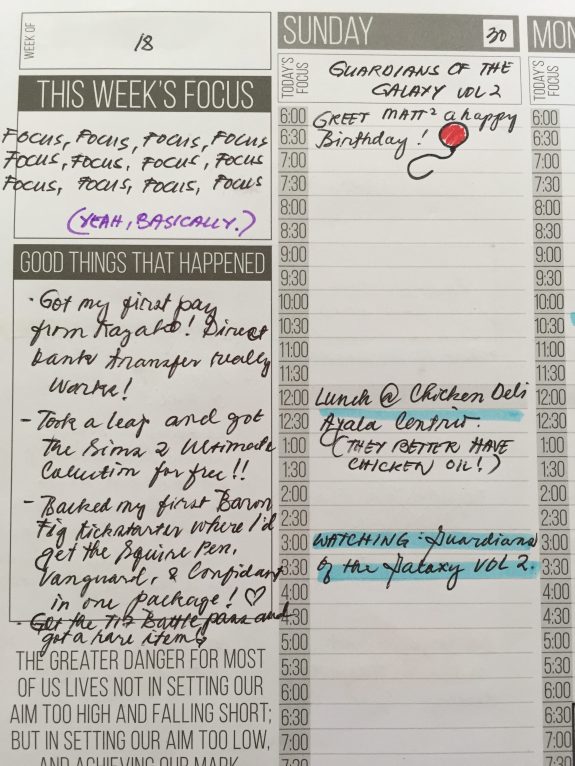 WEEK OF
18
THIS WEEK'S FOCUS
FOCUS, FOCUS, FOCUS, FOCUS
FOCUS, FOCUS, FOCUS, FOCUS
FOCUS, FOCUS, FOCUS, FOCUS
(YEAH, BASICALLY.)
GOOD THINGS THAT HAPPENED
- Got my first pay
from ! Direct
bank transfer really
works!
- Took a leap and got
The Sims 2 Ultimate
Collection for free!!
- Backed my first Baron
Fig Kickstarter where I'd
get the Squire Pen,
Vanguard, & Confidant
in one package! ♡
- Got the Battle pass and
got a rare item
THE GREATER DANGER FOR MOST
OF US LIVES NOT IN SETTING OUR
AIM TOO HIGH AND FALLING SHORT;
BUT IN SETTING OUR AIM TOO LOW,
AND ACHIEVING OUR MARK
SUNDAY
30
TODAY'S
FOCUS
GUARDIANS OF THE
GALAXY VOL 2
6:00 GREET MATT² a happy
6:30 Birthday!
7:00
7:30
8:00
8:30
9:00
9:30
10:00
10:30
11:00
11:30
12:00 Lunch @ Chicken Deli
12:30 Ayala Centrio.
1:00 (THEY BETTER HAVE
1:30 CHICKEN OIL!)
2:00
2:30
3:00 WATCHING: Guardians
3:30 of the Galaxy VOL 2.
4:00
4:30
5:00
5:30
6:00
6:30
7:00
7:30
MON
TODAY'S
FOCUS
6:00
6:30
7:00
7:30
8:00
8:30
9:00
9:30
10:00
10:30
11:00
11:30
12:00
12:30
1:00
1:30
2:00
2:30
3:00
3:30
4:00
4:30
5:00
5:30
6:00
6:30
7:00
7:30